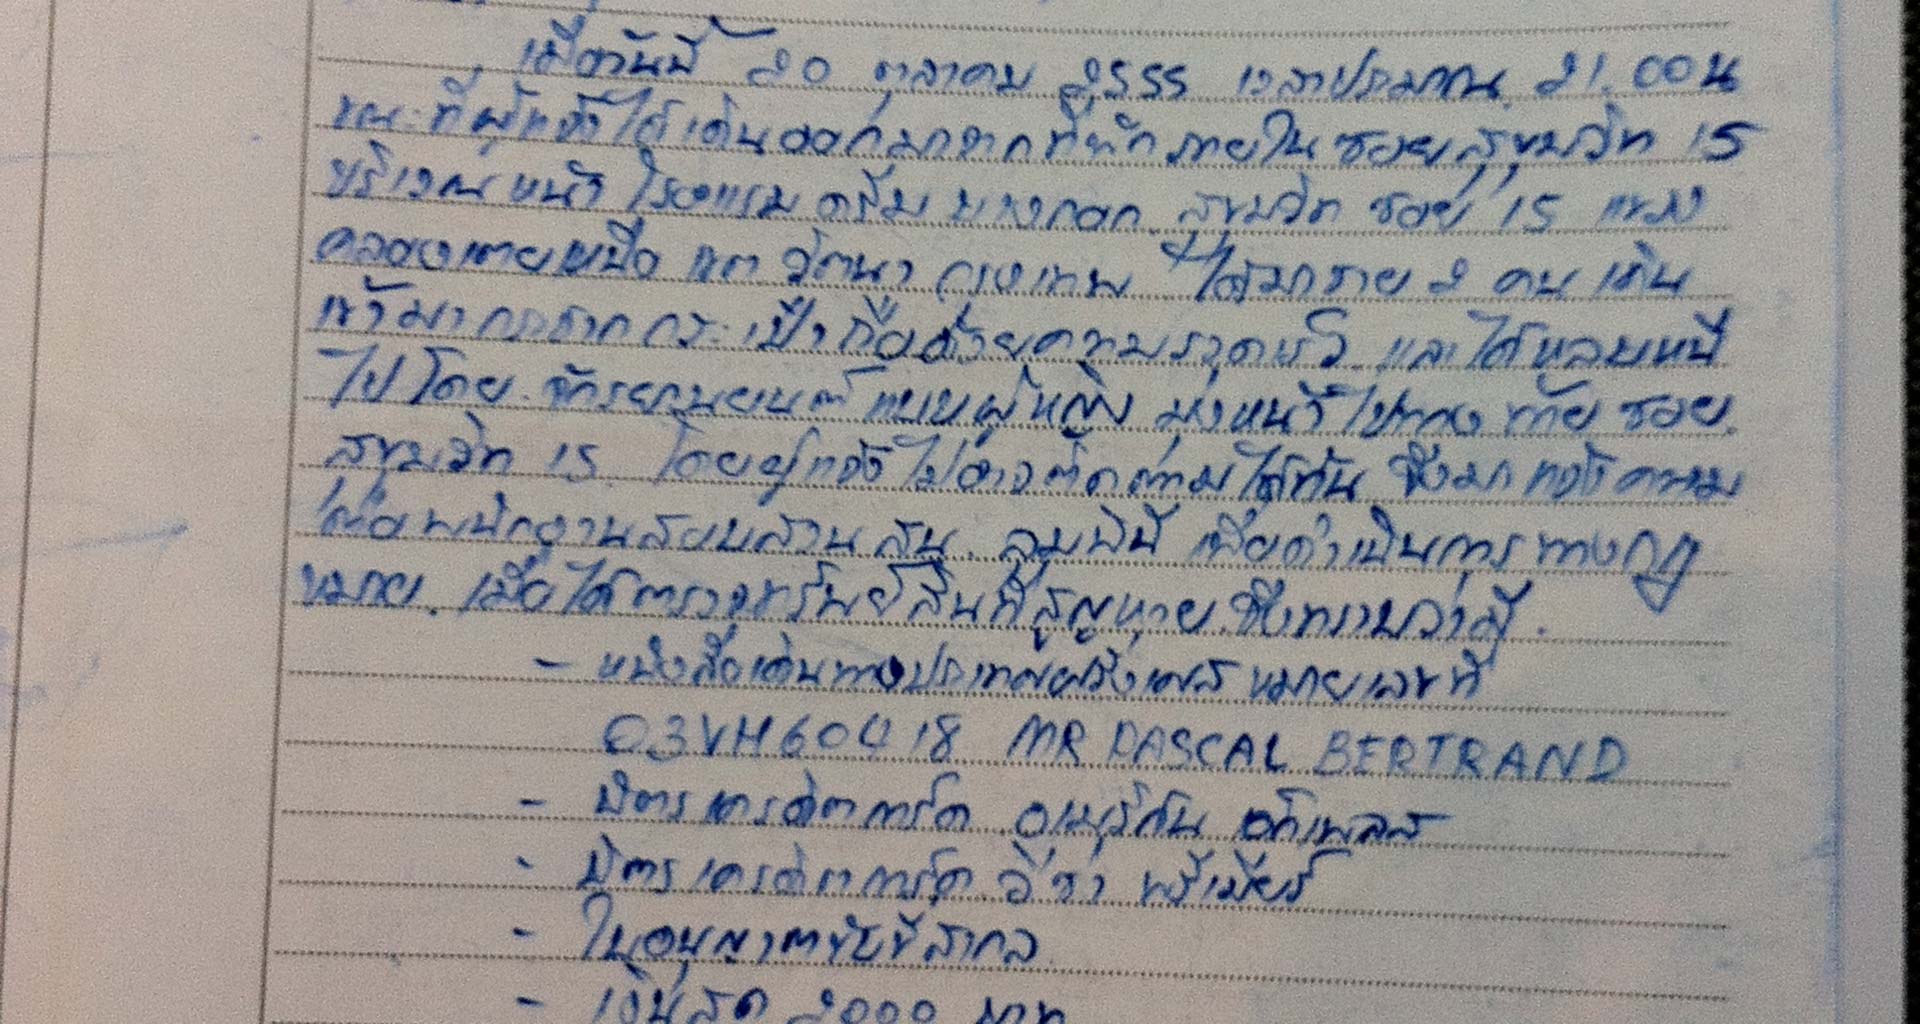 เมื่อวันที่ 20 ตุลาคม 2555 เวลาประมาณ 21.00 น
ขณะที่ผู้แจ้งได้เดินออกมาจากที่พักภายในซอยสุขุมวิท 15
บริเวณหน้าโรงแรมดรีม บางกอก สุขุมวิท ซอย 15 แขวง
คลองเตยเหนือ เขต วัฒนา กรุงเทพ ได้มีชาย 2 คน เดิน
เข้ามากระชากกระเป๋าถือด้วยความรวดเร็ว และได้หลบหนี
ไปโดย จักรยานยนต์แบบผู้หญิง มุ่งหน้าไปทาง ท้าย ซอย
สุขุมวิท 15 โดยผู้แจ้งไม่อาจติดตามได้ทัน จึงมาแจ้งความ
ต่อพนักงานสอบสวน สน. ลุมพินี เพื่อดำเนินการทางกฎ
หมาย. เมื่อได้ตรวจทรัพย์สินที่สูญหาย ซึ่งทราบว่ามี.
- หนังสือเดินทางประเทศฝรั่งเศส หมายเลขที่
03VH60418 MR PASCAL BERTRAND
- บัตรเครดิตการ์ด อเมริกัน เอ็กเพลส
- บัตรเครดิตการ์ด วีซ่า พรีเมียร์
- ใบอนุญาตขับขี่สากล
- เงินสด 2000 บาท